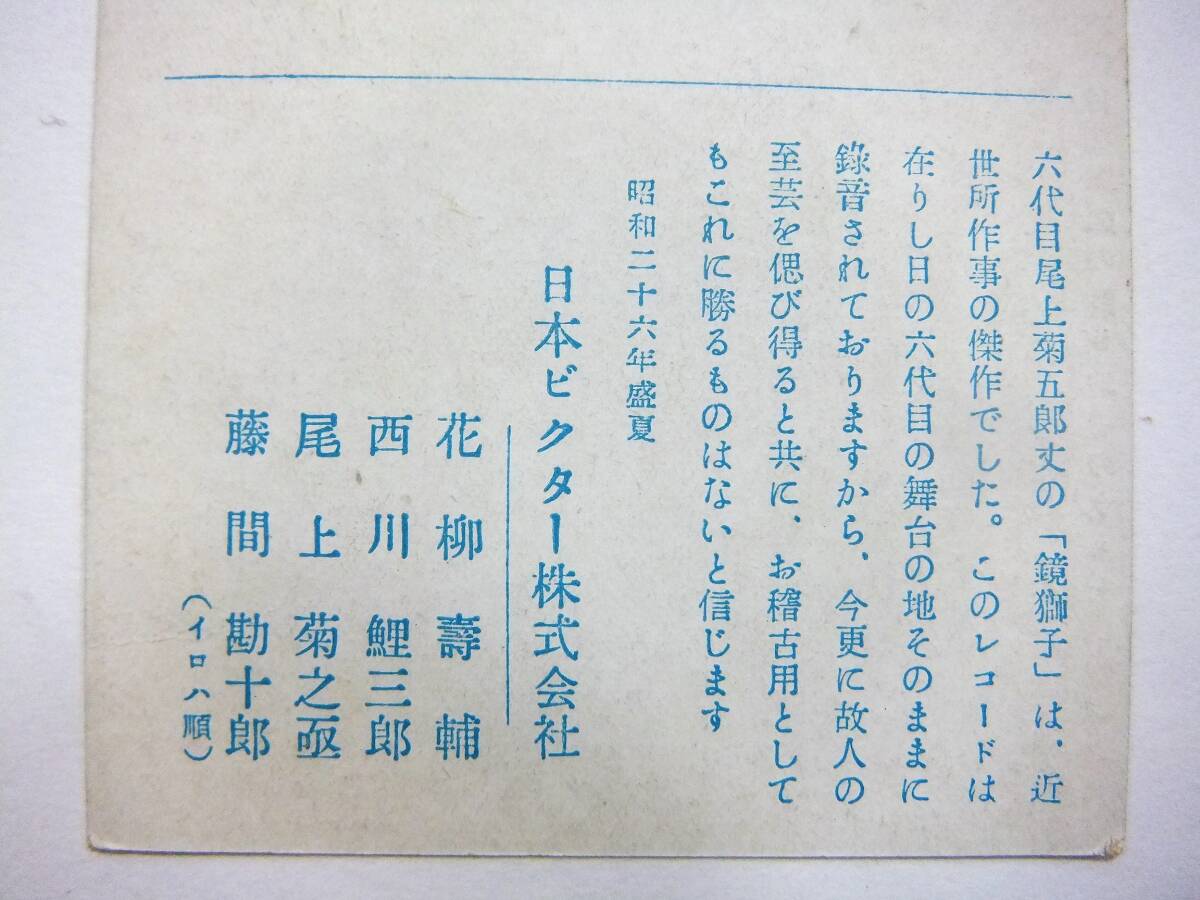 六代目尾上菊五郎丈の「鏡獅子」は、近
世所作事の傑作でした。このレコードは
在りし日の六代目の舞台の地そのままに
錄音されておりますから、今更に故人の
至芸を偲び得ると共に、お稽古用として
もこれに勝るものはないと信じます
昭和二十六年盛夏
日本ビクター株式会社
花柳壽輔
西川鯉三郎
尾上菊之丞
藤間勘十郎
(イロハ順)